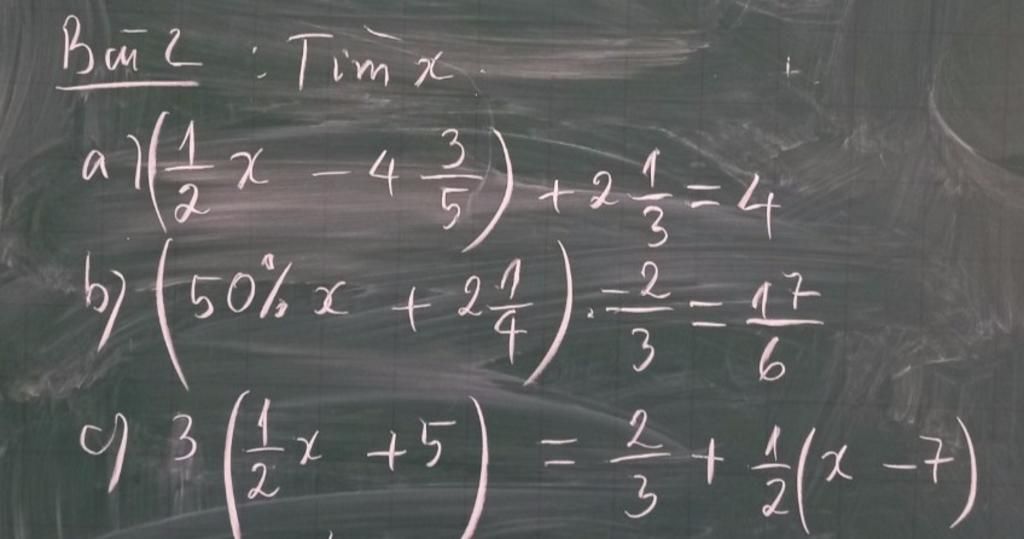 Bài 2 : Tìm x.
a) (1/2 x - 4 3/5) + 2 1/3 = 4
b) (50% x + 2 1/4) . -2/3 = 17/6
c) 3 (1/2 x + 5) = 2/3 + 1/2 (x - 7)